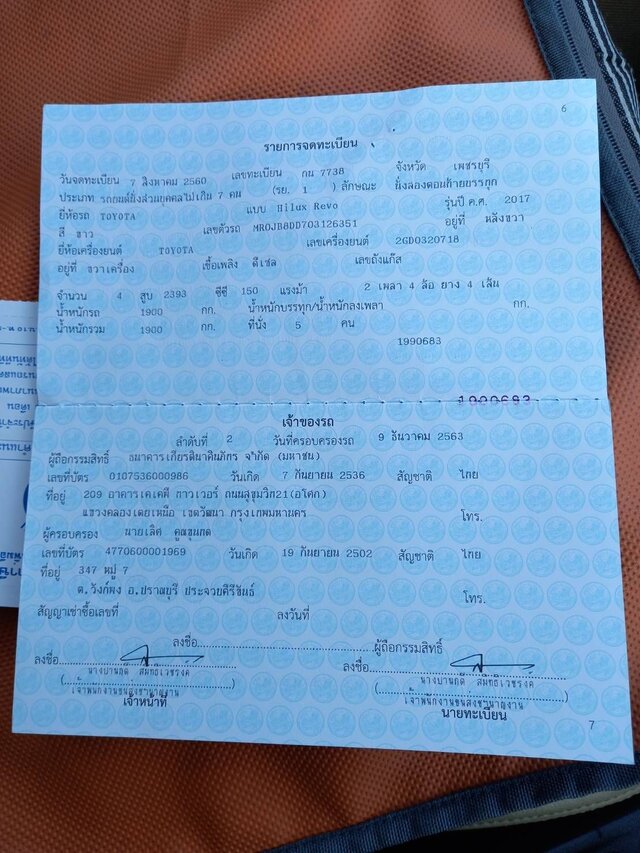 6
รายการจดทะเบียน
วันจดทะเบียน 7 สิงหาคม 2560 เลขทะเบียน กน 7738 จังหวัด เพชรบุรี
ประเภท รถยนต์นั่งส่วนบุคคลไม่เกิน 7 คน (รย. 1 ) ลักษณะ นั่งสองตอนท้ายบรรทุก
ยี่ห้อรถ TOYOTA แบบ Hilux Revo รุ่นปี ค.ศ. 2017
สี ขาว เลขตัวรถ MROJB8DD703126351 อยู่ที่ หลังขวา
ยี่ห้อเครื่องยนต์ TOYOTA เลขเครื่องยนต์ 2GD0320718
อยู่ที่ ขวาเครื่อง เชื้อเพลิง ดีเซล เลขถังแก๊ส
จำนวน 4 สูบ 2393 ซีซี 150 แรงม้า 2 เพลา 4 ล้อ ยาง 4 เส้น
น้ำหนักรถ 1900 กก. น้ำหนักบรรทุก/น้ำหนักลงเพลา กก.
น้ำหนักรวม 1900 กก. ที่นั่ง 5 คน
1990683
เจ้าของรถ
ลำดับที่ 2 วันที่ครอบครองรถ 9 ธันวาคม 2563
ผู้ถือกรรมสิทธิ์ ธนาคารเกียรตินาคินภัทร จำกัด (มหาชน)
เลขที่บัตร 0107536000986 วันเกิด 7 กันยายน 2536 สัญชาติ ไทย
ที่อยู่ 209 อาคารเคเคพี ทาวเวอร์ ถนนสุขุมวิท21(อโศก)
แขวงคลองเตยเหนือ เขตวัฒนา กรุงเทพมหานคร โทร.
ผู้ครอบครอง นายเลิศ คูณขุนทด
เลขที่บัตร 4770600001969 วันเกิด 19 กันยายน 2502 สัญชาติ ไทย
ที่อยู่ 347 หมู่ 7
ต.วังก์พง อ.ปราณบุรี ประจวบคีรีขันธ์ โทร.
สัญญาเช่าซื้อเลขที่ ลงวันที่
ลงชื่อ ผู้ถือกรรมสิทธิ์
ลงชื่อ ลงชื่อ
เจ้าพนักงานขนส่งชำนาญงาน เจ้าพนักงานขนส่งชำนาญงาน
เจ้าหน้าที่ นายทะเบียน
7